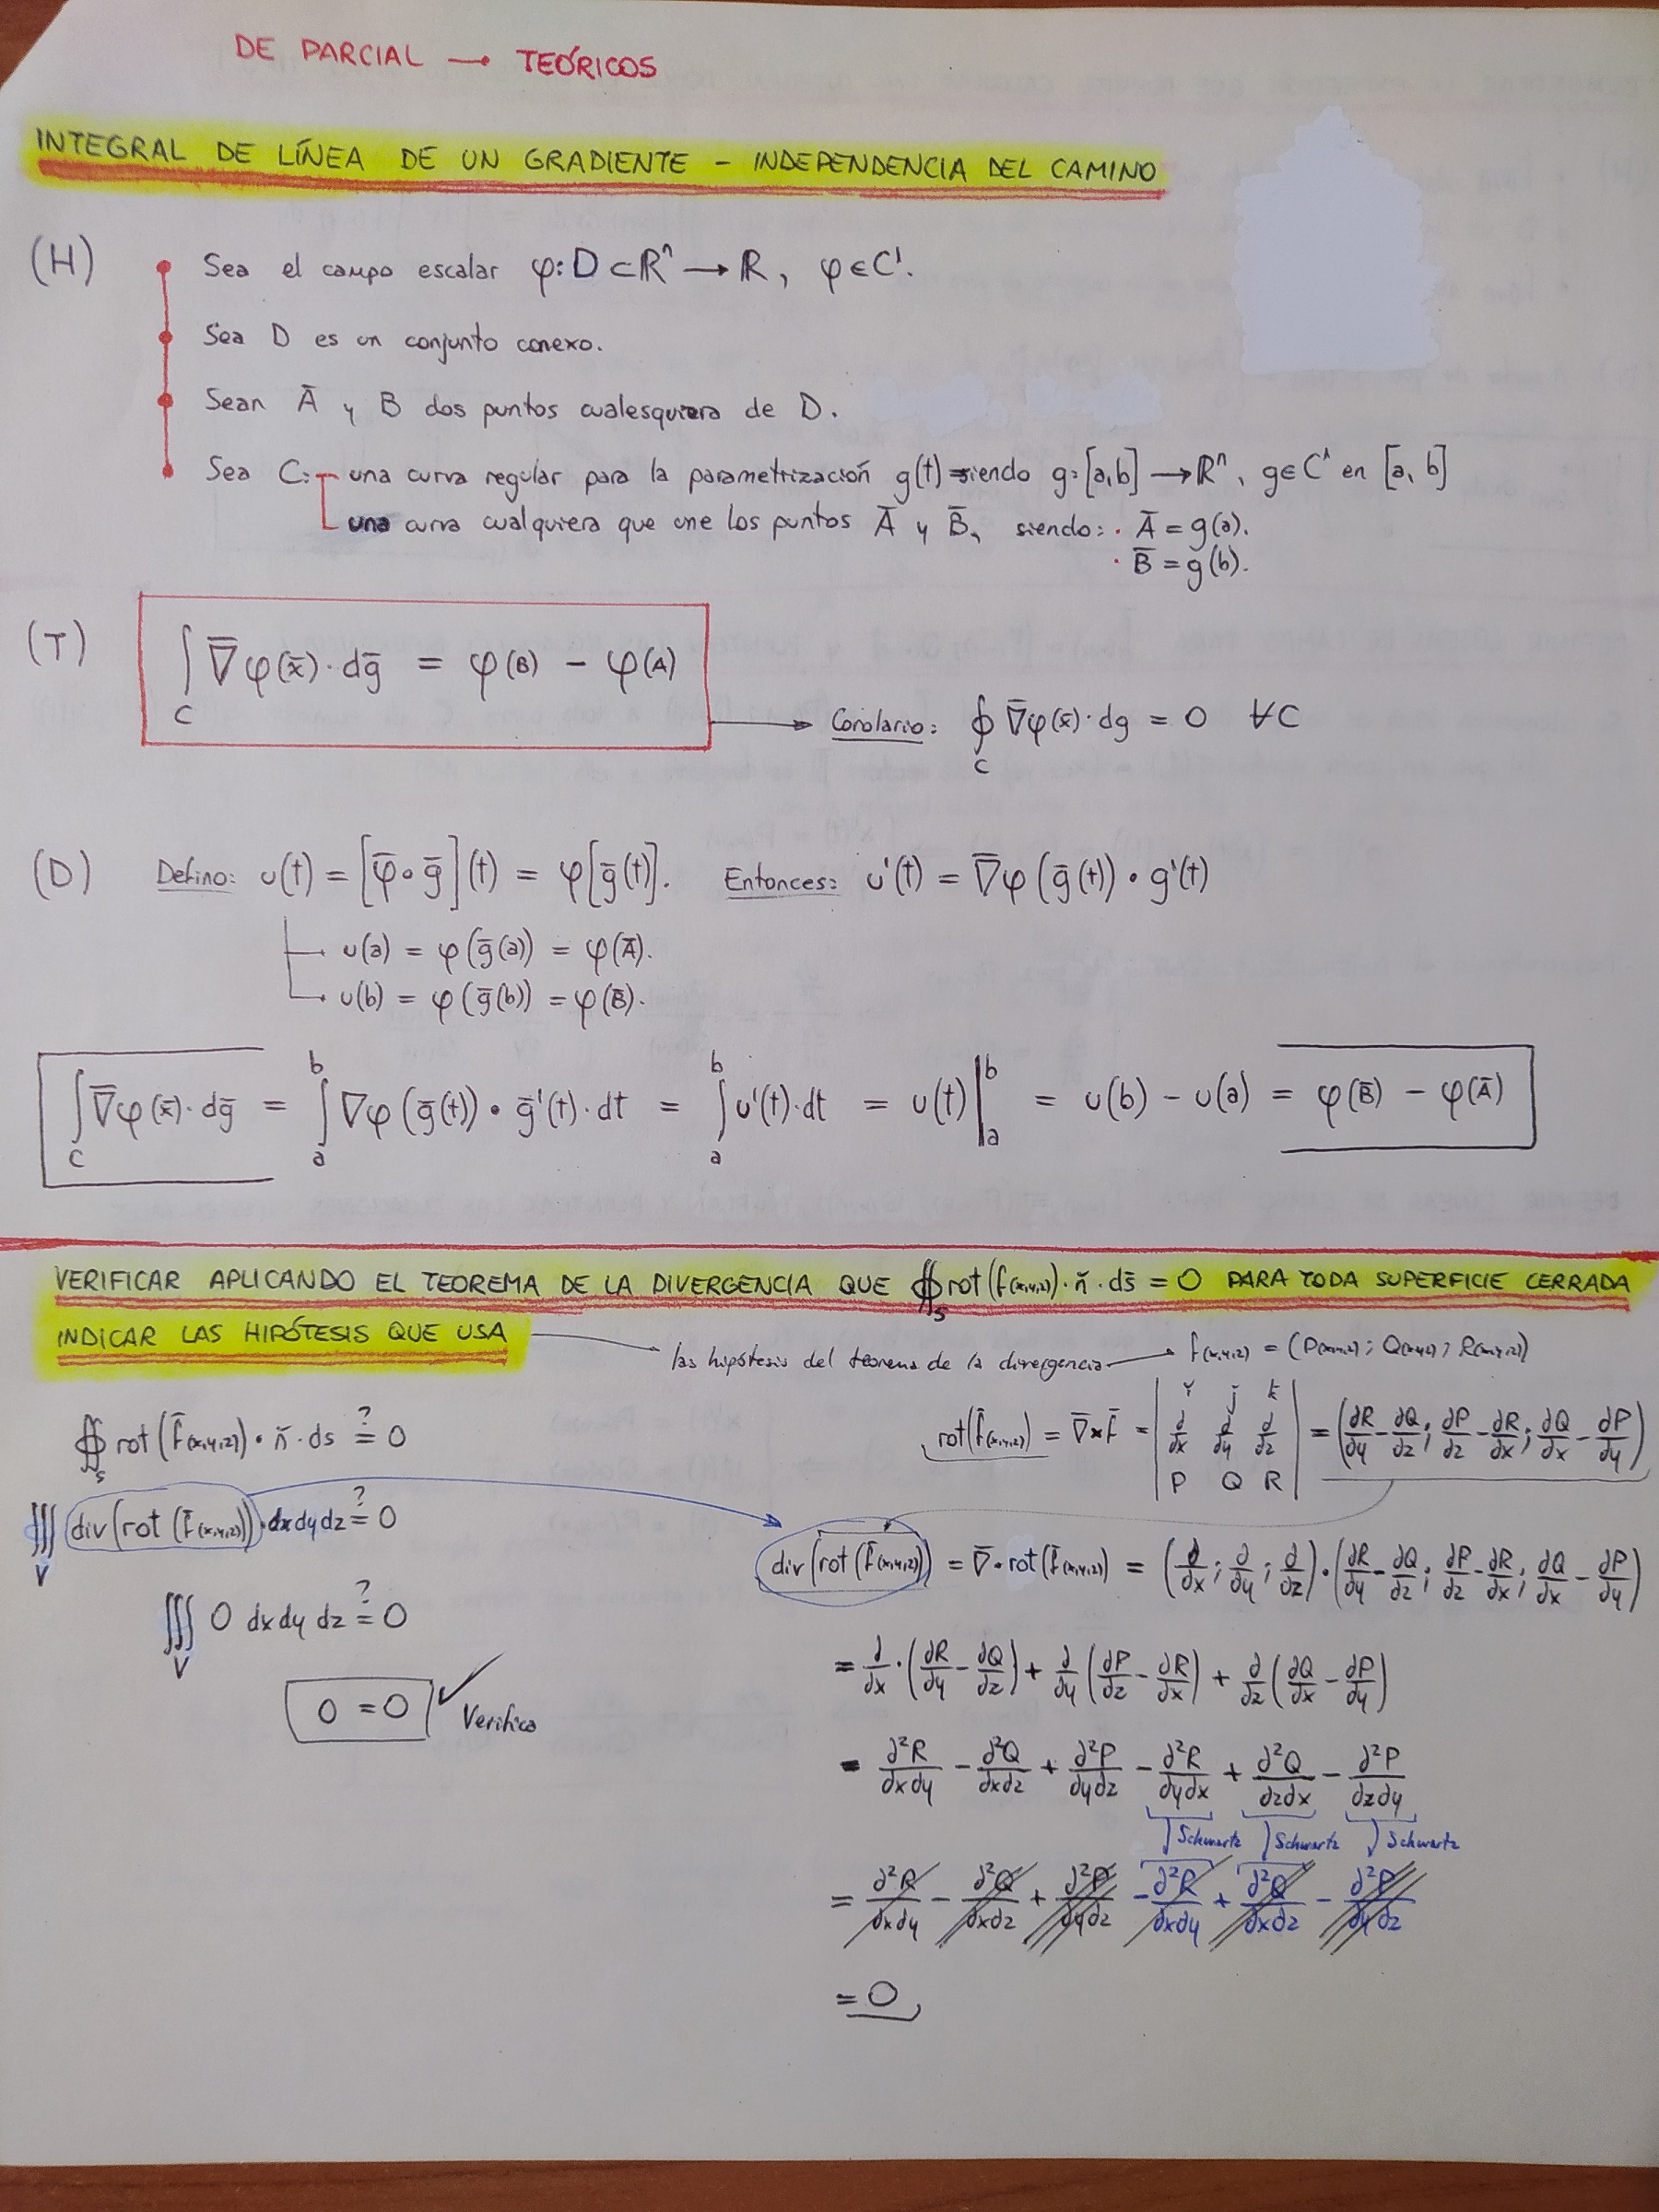 DE PARCIAL → TEÓRICOS
INTEGRAL DE LÍNEA DE UN GRADIENTE - INDEPENDENCIA DEL CAMINO
(H)
• Sea el campo escalar φ: D ⊂ ℝⁿ → ℝ, φ ∈ C¹.
• Sea D es un conjunto conexo.
• Sean Ā y B dos puntos cualesquiera de D.
• Sea C: una curva regular para la parametrización g(t) siendo g: [a,b] → ℝⁿ, g ∈ C¹ en [a, b]
una curva cualquiera que une los puntos Ā y B̄, siendo: • Ā = g(a).
• B̄ = g(b).
(T) ∫_C ∇̄φ(x̄)·dḡ = φ(B) - φ(A)
→ Corolario: ∮_C ∇̄φ(x̄)·dg = 0 ∀C
(D) Defino: u(t) = [φ̄∘ḡ](t) = φ[ḡ(t)]. Entonces: u'(t) = ∇̄φ(ḡ(t)) • g'(t)
u(a) = φ(ḡ(a)) = φ(Ā).
u(b) = φ(ḡ(b)) = φ(B̄).
∫_C ∇̄φ(x̄)·dḡ = ∫_a^b ∇φ(ḡ(t)) • ḡ'(t)·dt = ∫_a^b u'(t)·dt = u(t)|_a^b = u(b) - u(a) = φ(B̄) - φ(Ā)
VERIFICAR APLICANDO EL TEOREMA DE LA DIVERGENCIA QUE ∯_S rot(f(x,y,z))·ň·ds̄ = 0 PARA TODA SUPERFICIE CERRADA
INDICAR LAS HIPÓTESIS QUE USA
las hipótesis del teorema de la divergencia → f(x,y,z) = (P(x,y,z); Q(x,y,z); R(x,y,z))
∯_S rot(f̄(x,y,z)) • ň·ds =? 0
rot(f̄(x,y,z)) = ∇̄×F̄ = | ǐ ǰ ǩ ; ∂/∂x ∂/∂y ∂/∂z ; P Q R | = (∂R/∂y - ∂Q/∂z; ∂P/∂z - ∂R/∂x; ∂Q/∂x - ∂P/∂y)
∭_V div(rot(f̄(x,y,z)))·dxdydz =? 0
div(rot(f̄(x,y,z))) = ∇̄·rot(f̄(x,y,z)) = (∂/∂x; ∂/∂y; ∂/∂z)·(∂R/∂y - ∂Q/∂z; ∂P/∂z - ∂R/∂x; ∂Q/∂x - ∂P/∂y)
∭_V 0 dxdy dz =? 0
0 = 0 ✓ Verifica
= ∂/∂x·(∂R/∂y - ∂Q/∂z) + ∂/∂y(∂P/∂z - ∂R/∂x) + ∂/∂z(∂Q/∂x - ∂P/∂y)
= ∂²R/∂x∂y - ∂²Q/∂x∂z + ∂²P/∂y∂z - ∂²R/∂y∂x + ∂²Q/∂z∂x - ∂²P/∂z∂y
Schwartz Schwartz Schwartz
= ∂²R/∂x∂y - ∂²Q/∂x∂z + ∂²P/∂y∂z - ∂²R/∂x∂y + ∂²Q/∂x∂z - ∂²P/∂y∂z
= 0